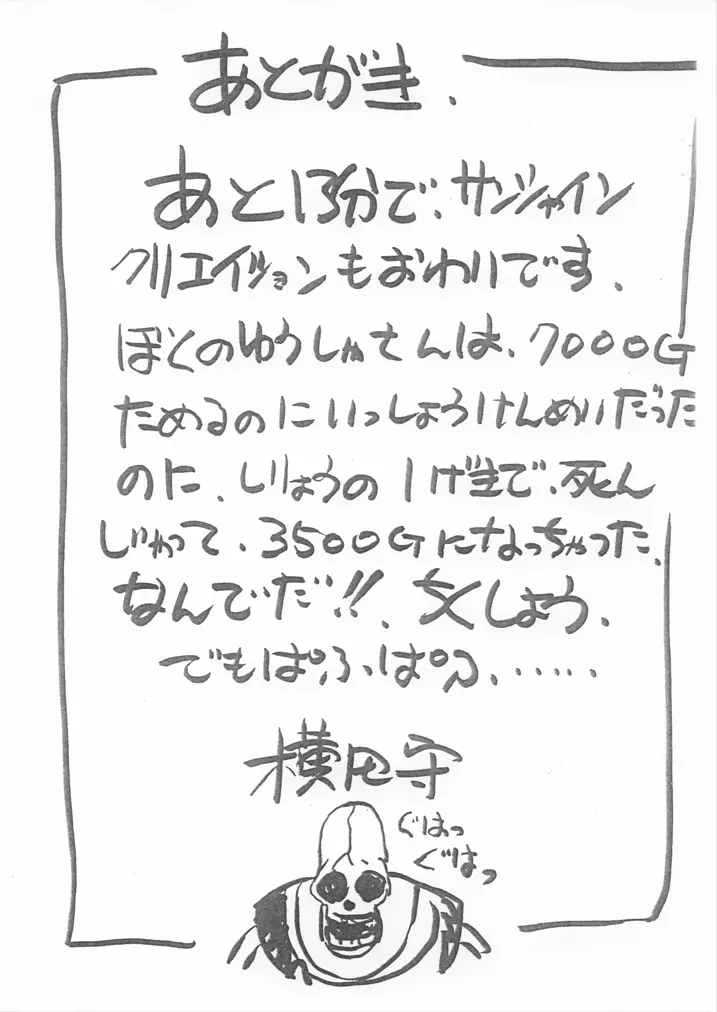 あとがき.
あと13分で、サンシャイン
クリエイションもおわりです.
ぼくのゆうしゃさんは、7000G
ためるのにいっしょうけんめいだった
のに、しりょうの1げきで、死ん
じゃって、3500Gになっちゃった.
なんでだ!!、ちくしょう.
でもぱふ、ぱふ、・・・・・・
横田守
ぐはっ
ぐはっ